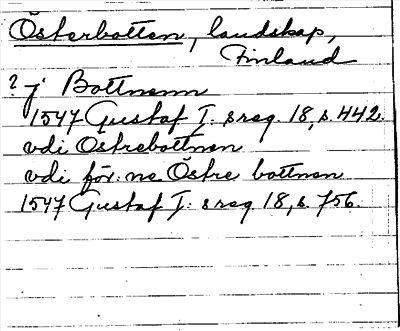 Österbotten, landskap,
Finland
? j Bottnenn
1547 Gustaf I: s reg. 18, s. 442.
vdi Ostrebottnen
vdi för: ne Östre bottnen
1547 Gustaf I: s reg 18, s. 756.